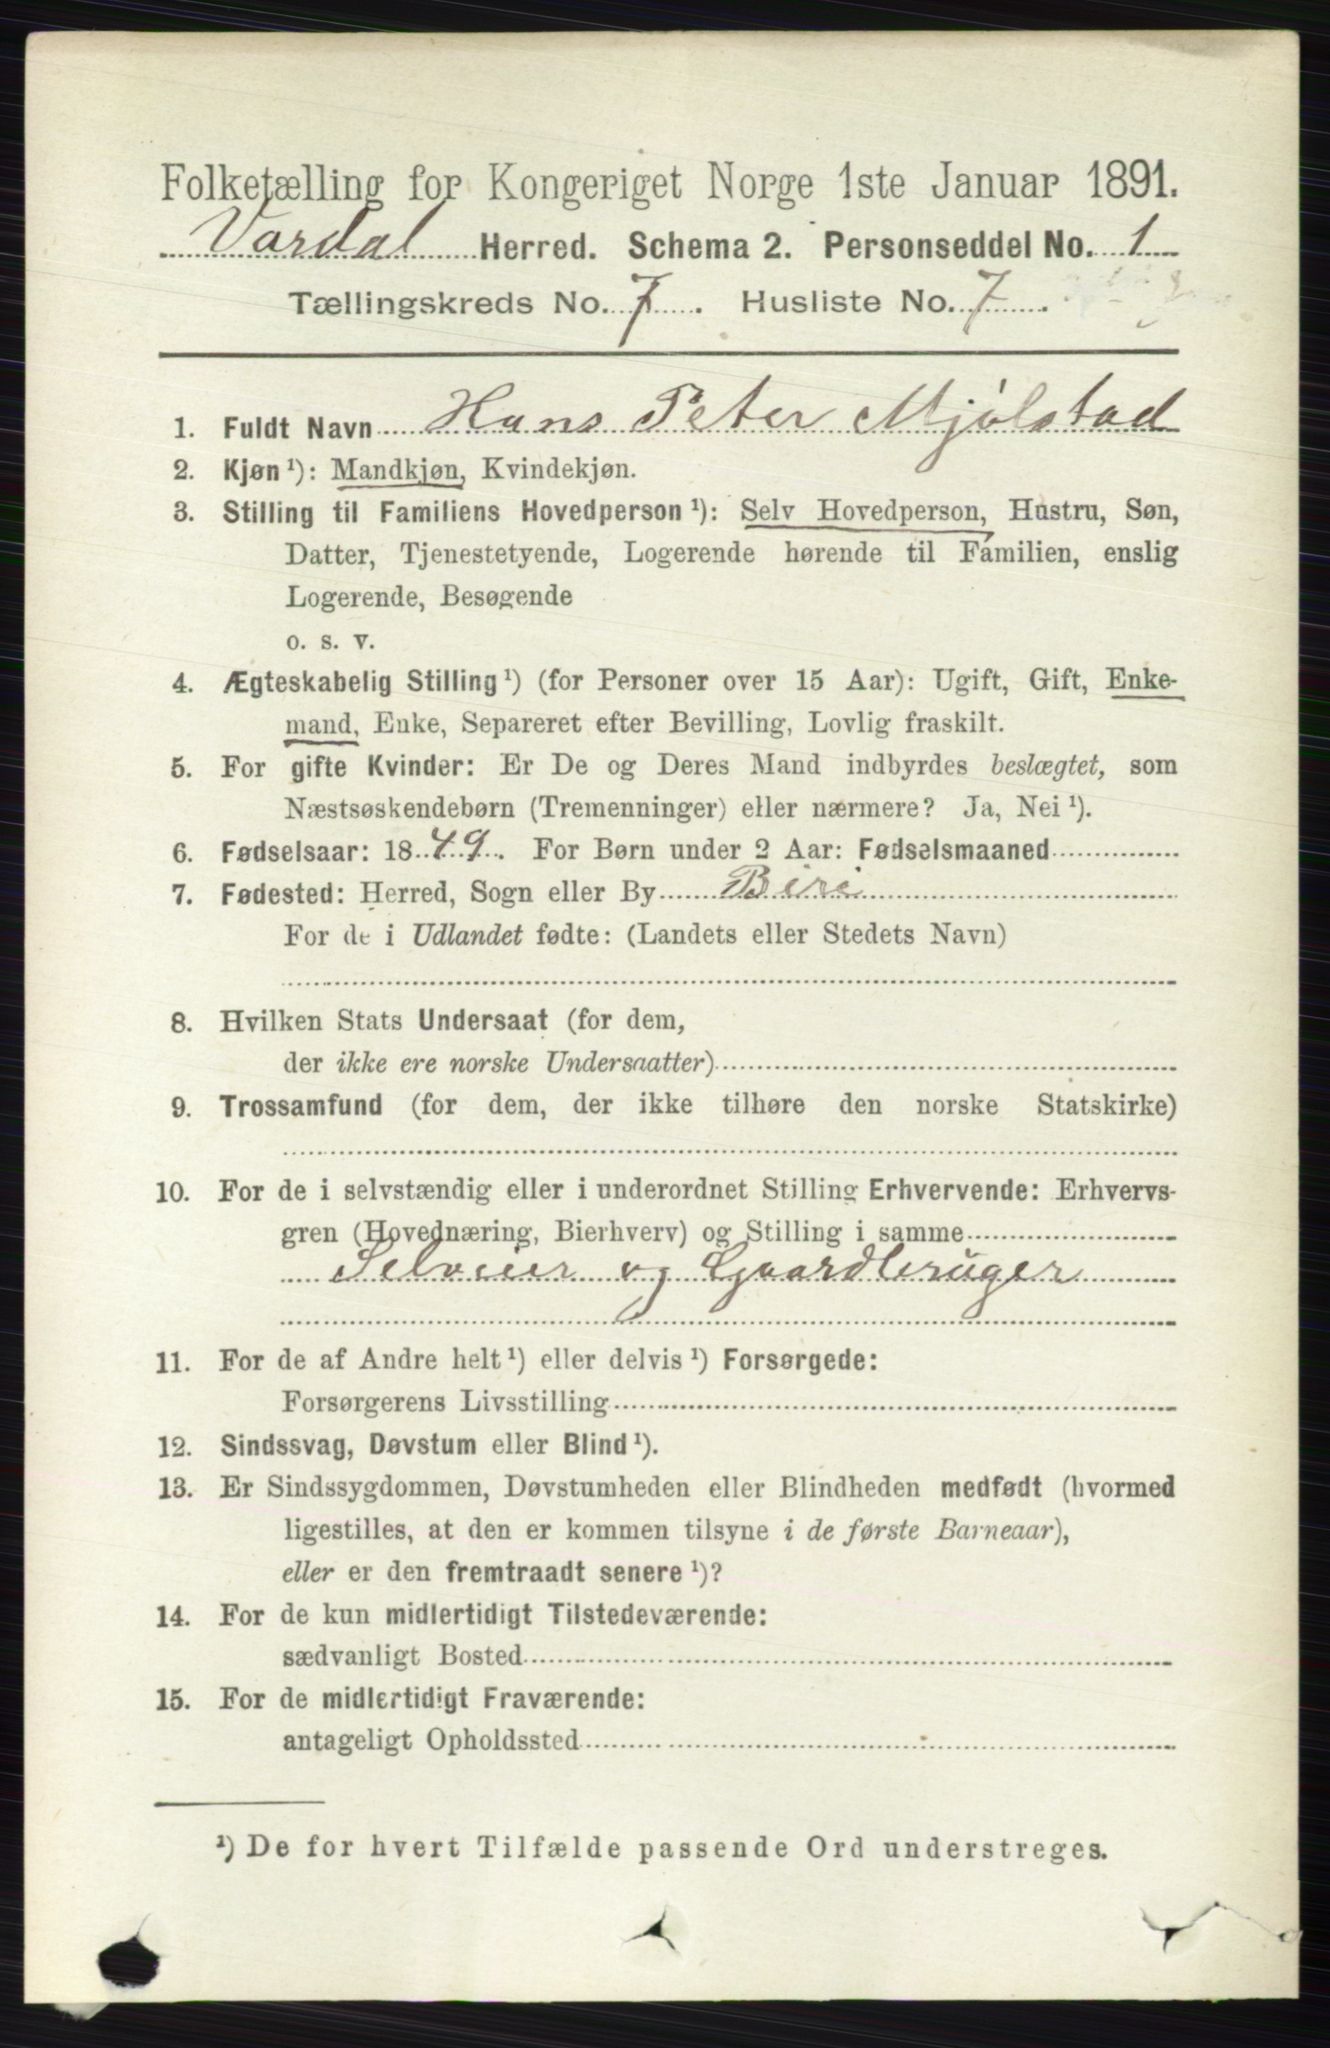 Folketælling for Kongeriget Norge 1ste Januar 1891.
Vardal Herred. Schema 2. Personseddel No. 1
Tællingskreds No. 7. Husliste No. 7.
1. Fuldt Navn Hans Peter Mjølstad
2. Kjøn ¹): Mandkjøn, Kvindekjøn.
3. Stilling til Familiens Hovedperson ¹): Selv Hovedperson, Hustru, Søn,
Datter, Tjenestetyende, Logerende hørende til Familien, enslig
Logerende, Besøgende
o. s. v.
4. Ægteskabelig Stilling ¹) (for Personer over 15 Aar): Ugift, Gift, Enke-
mand, Enke, Separeret efter Bevilling, Lovlig fraskilt.
5. For gifte Kvinder: Er De og Deres Mand indbyrdes beslægtet, som
Næstsøskendebørn (Tremenninger) eller nærmere? Ja, Nei ¹).
6. Fødselsaar: 1849. For Børn under 2 Aar: Fødselsmaaned
7. Fødested: Herred, Sogn eller By Biri
For de i Udlandet fødte: (Landets eller Stedets Navn)
8. Hvilken Stats Undersaat (for dem,
der ikke ere norske Undersaatter)
9. Trossamfund (for dem, der ikke tilhøre den norske Statskirke)
10. For de i selvstændig eller i underordnet Stilling Erhvervende: Erhvervs-
gren (Hovednæring, Bierhverv) og Stilling i samme
Selveier og Gaardbruger
11. For de af Andre helt ¹) eller delvis ¹) Forsørgede:
Forsørgerens Livsstilling
12. Sindssvag, Døvstum eller Blind ¹).
13. Er Sindssygdommen, Døvstumheden eller Blindheden medfødt (hvormed
ligestilles, at den er kommen tilsyne i de første Barneaar),
eller er den fremtraadt senere ¹)?
14. For de kun midlertidigt Tilstedeværende:
sædvanligt Bosted
15. For de midlertidigt Fraværende:
antageligt Opholdssted
¹) De for hvert Tilfælde passende Ord understreges.